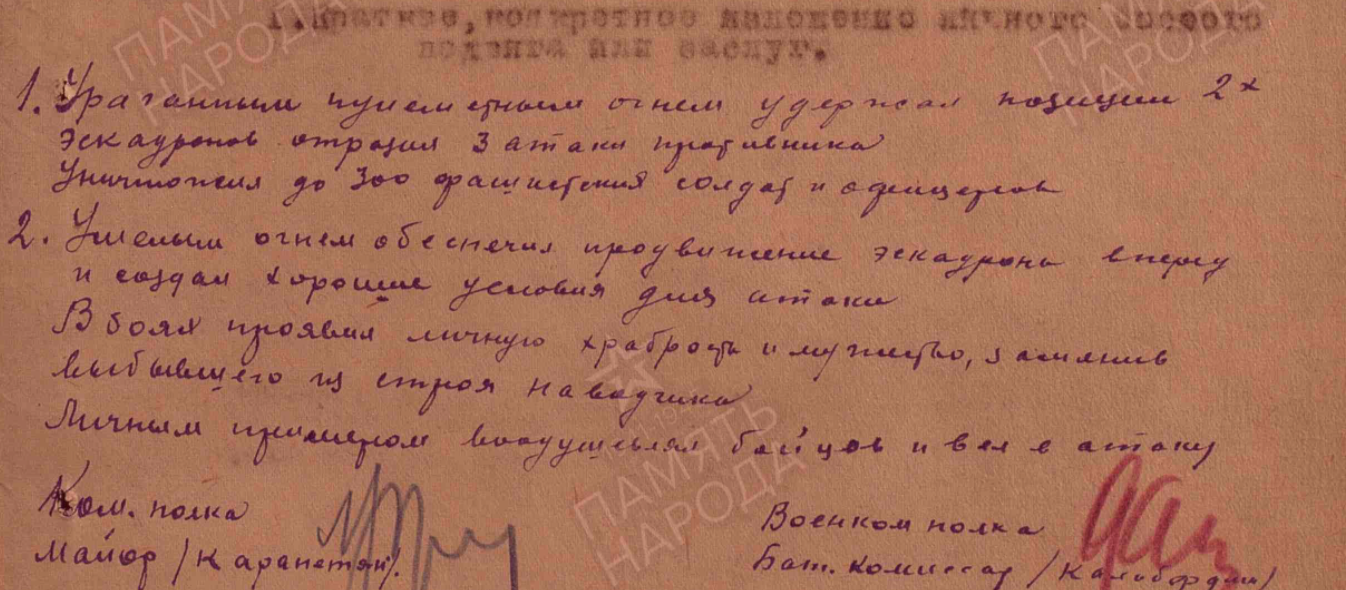 I. Краткое, конкретное изложение личного боевого
подвига или заслуг.
1. Ураганным пулеметным огнем удержал позиции 2х
эскадронов отразил 3 атаки противника
Уничтожил до 300 фашистских солдат и офицеров
2. Умелым огнем обеспечил продвижение эскадрона вперед
и создал хорошие условия для атаки
В боях проявил личную храбрость и мужество, заменив
выбывшего из строя наводчика
Личным примером воодушевлял бойцов и вел в атаку
Ком. полка
Майор /Карапетян/.
Военком полка
Бат. комиссар
ПАМЯТЬ
НАРОДА
ПАМЯТЬ
НАРОДА
ПАМЯТЬ
НАРОДА